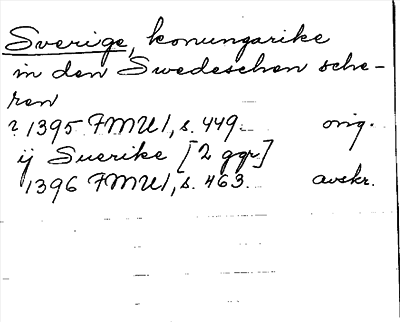 Sverige, konungarike
in den Swedeschen sche-
ren
? 1395 FMU I, s. 449. orig.
ij Suerike [2 ggr]
1396 FMU I, s. 463. avskr.